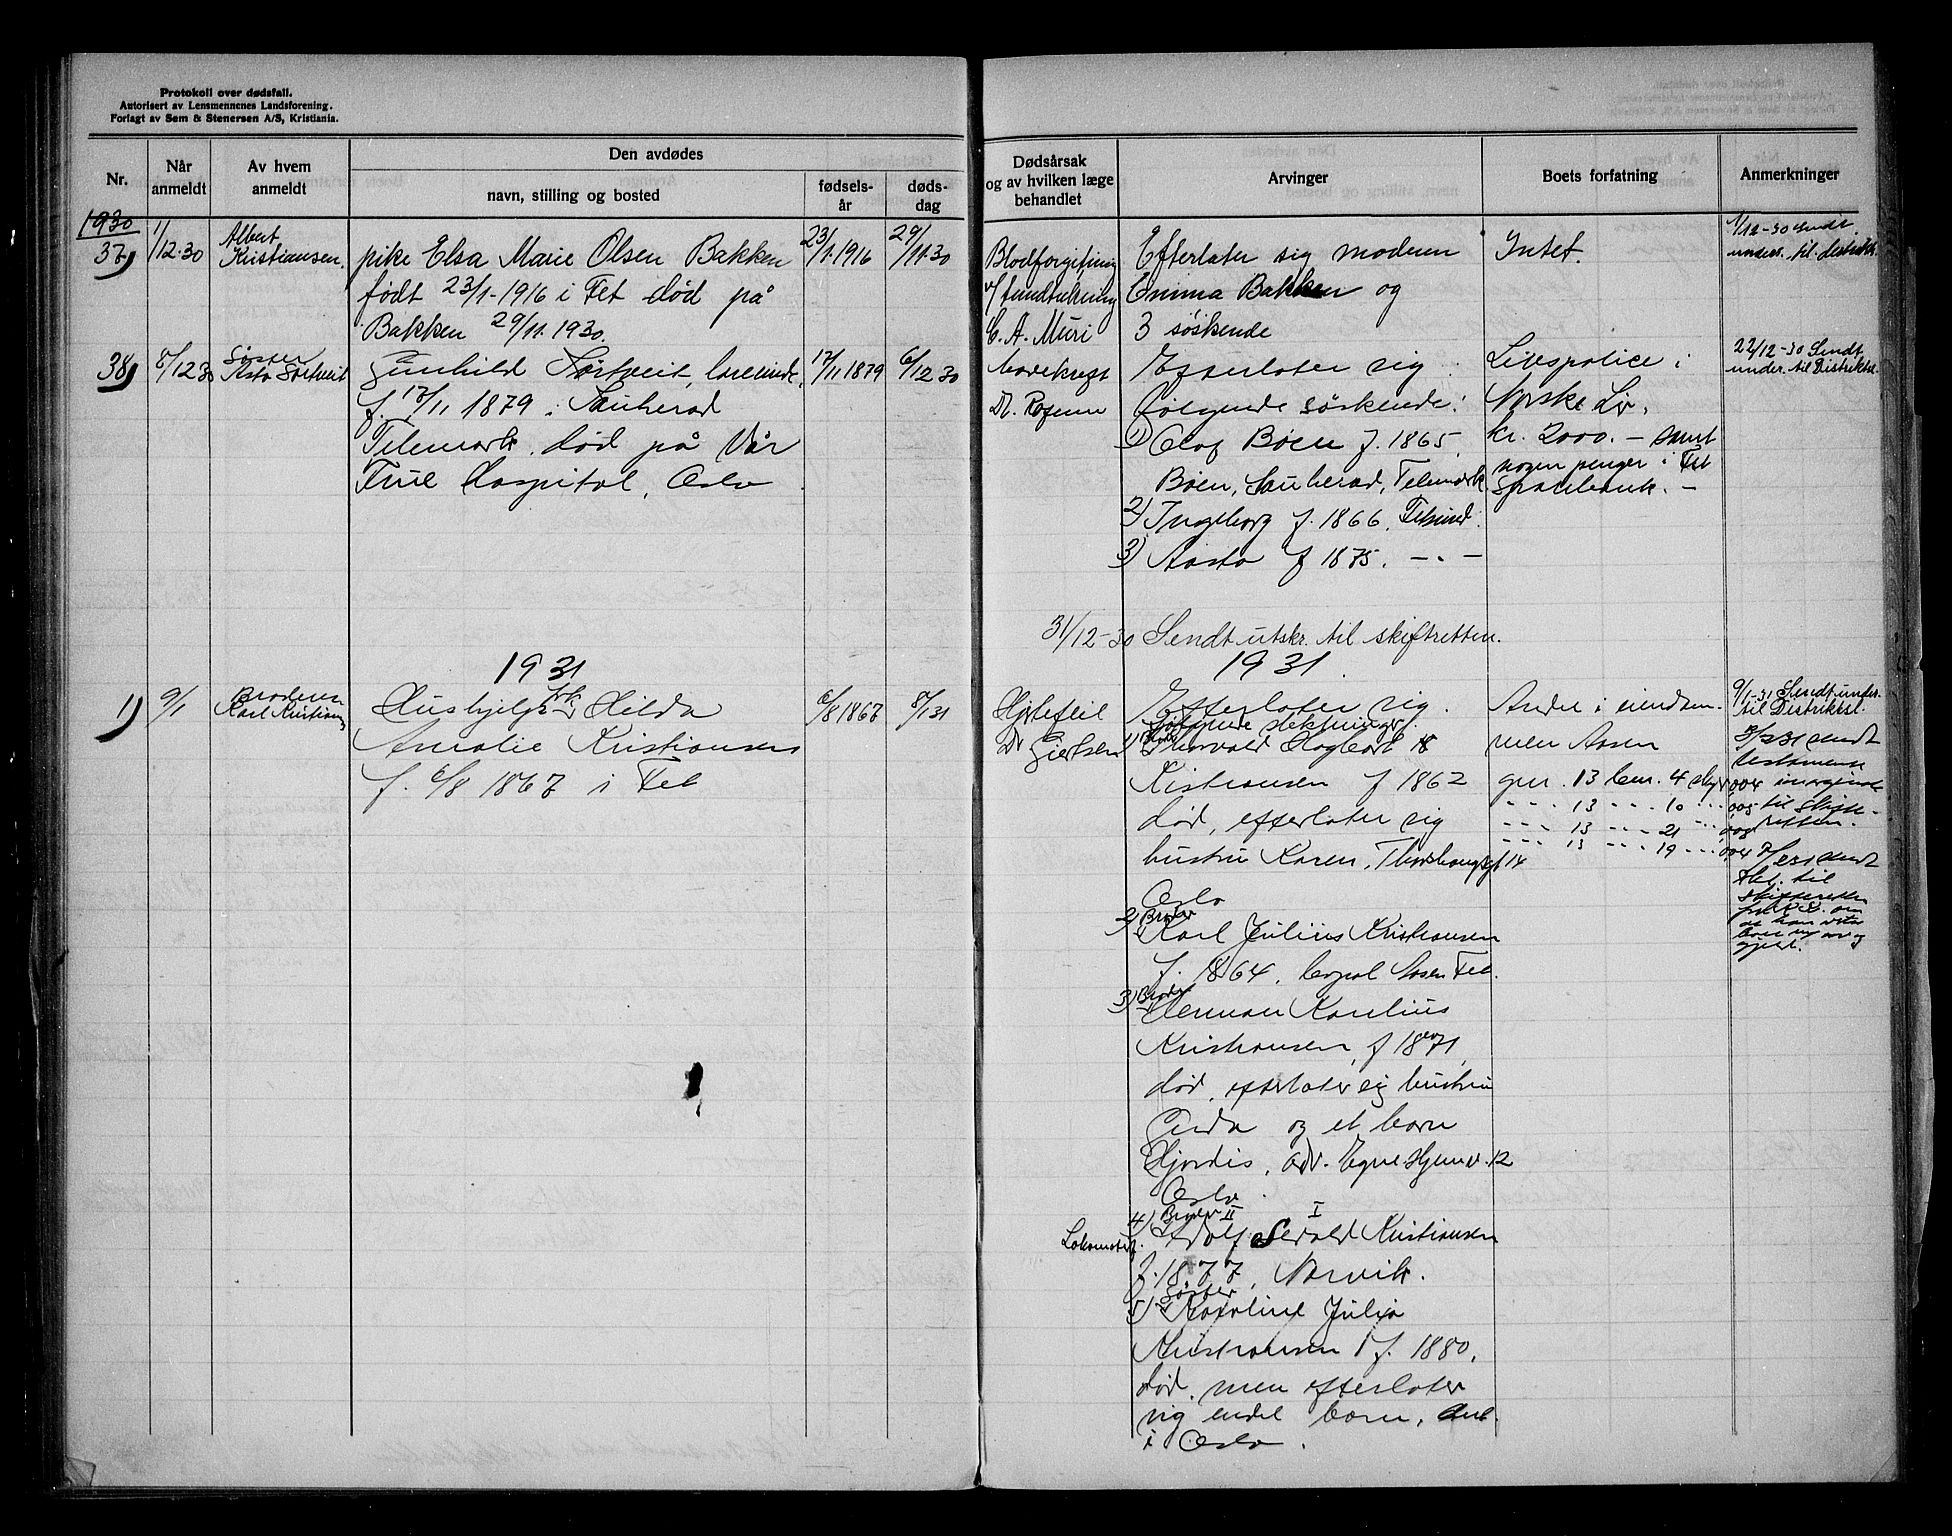 Protokoll over dødsfall.
Autorisert av Lensmennenes Landsforening.
Forlagt av Sem & Stenersen A/S, Kristiania.
Nr.
Når anmeldt
Av hvem anmeldt
Den avdødes
navn, stilling og bosted
fødsels-år
døds-dag
Dødsårsak og av hvilken læge behandlet
Arvinger
Boets forfatning
Anmerkninger
1930
37)
1/12.30
Albert
Kristiansen.
pike Elsa Marie Olsen Bakken
født 23/1-1916 i Fet død på
Bakken 29/11.1930.
23/1.1916
29/11.30
Blodforgiftning
C. A. Muri
Efterlater sig moderen
Emma Bakken og
3 søskende
Intet.
1/12-30 Sendt
underr. til distriktsl.
38)
8/12 30
Søster
Åsta Sørtveit
Gunhild Sørtveit, lærerinde,
f. 17/11 1879 i Sauherad
Telemark. død på Vår
Frue Hospital, Oslo
17/11 1879
6/12 30
Dr.
Efterlater sig
følgende søskende:
1) Olaf Bøen f. 1865,
Bøen, Sauherad, Telemark.
2) Ingeborg f. 1866,
3) Aasta f 1875. — " —
Livspolice i
Norske Liv,
kr. 2000. — samt
nogen penger i Fet
Sparebank. —
22/12-30 Sendt
under. til Distriktsl.
31/12-30 Sendt utskr. til skifteretten.
1931
1931.
1)
9/1
Broderen
Karl Kristiansen
Hushjelp frk. Hilda
Amalie Kristiansen
f. 6/8 1867 i Fet
6/8 1867
8/1 31
Hjertefeil
Dr Gjertsen
Efterlater sig.
følgende slektninger.
1) Thorvald Hagbart
Kristiansen f 1862
død, efterlater sig
hustru Karen, Thorshaugsgt 14
Oslo
2) Broder
Karl Julius Kristiansen
f. 1864, Aasen Fet.
3) Broder
Herman Karelius
Kristiansen, f 1871,
død, efterlater sig hustru
og et barn
Hjørdis, adr. Egne Hjemv. 12
Oslo.
4) Broder II I
Lokomotivf. Adolf Sevald Kristiansen
f. 1877, Narvik.
5) Søster
Karoline Julia
Kristiansen f. 1880,
død. men efterlater
sig endel barn,
i Oslo.
Andel i eiendom-
men Aasen
gnr. 13 bnr. 4 skyl 0,04
" 13 " 10 " 0,05
" 13 " 21 "
" 13 " 19 " 0,04
9/1-31 Sendt under.
til Distriktsl.
sendt
testamente
til Skifte-
retten.
sendt
til
skifteretten